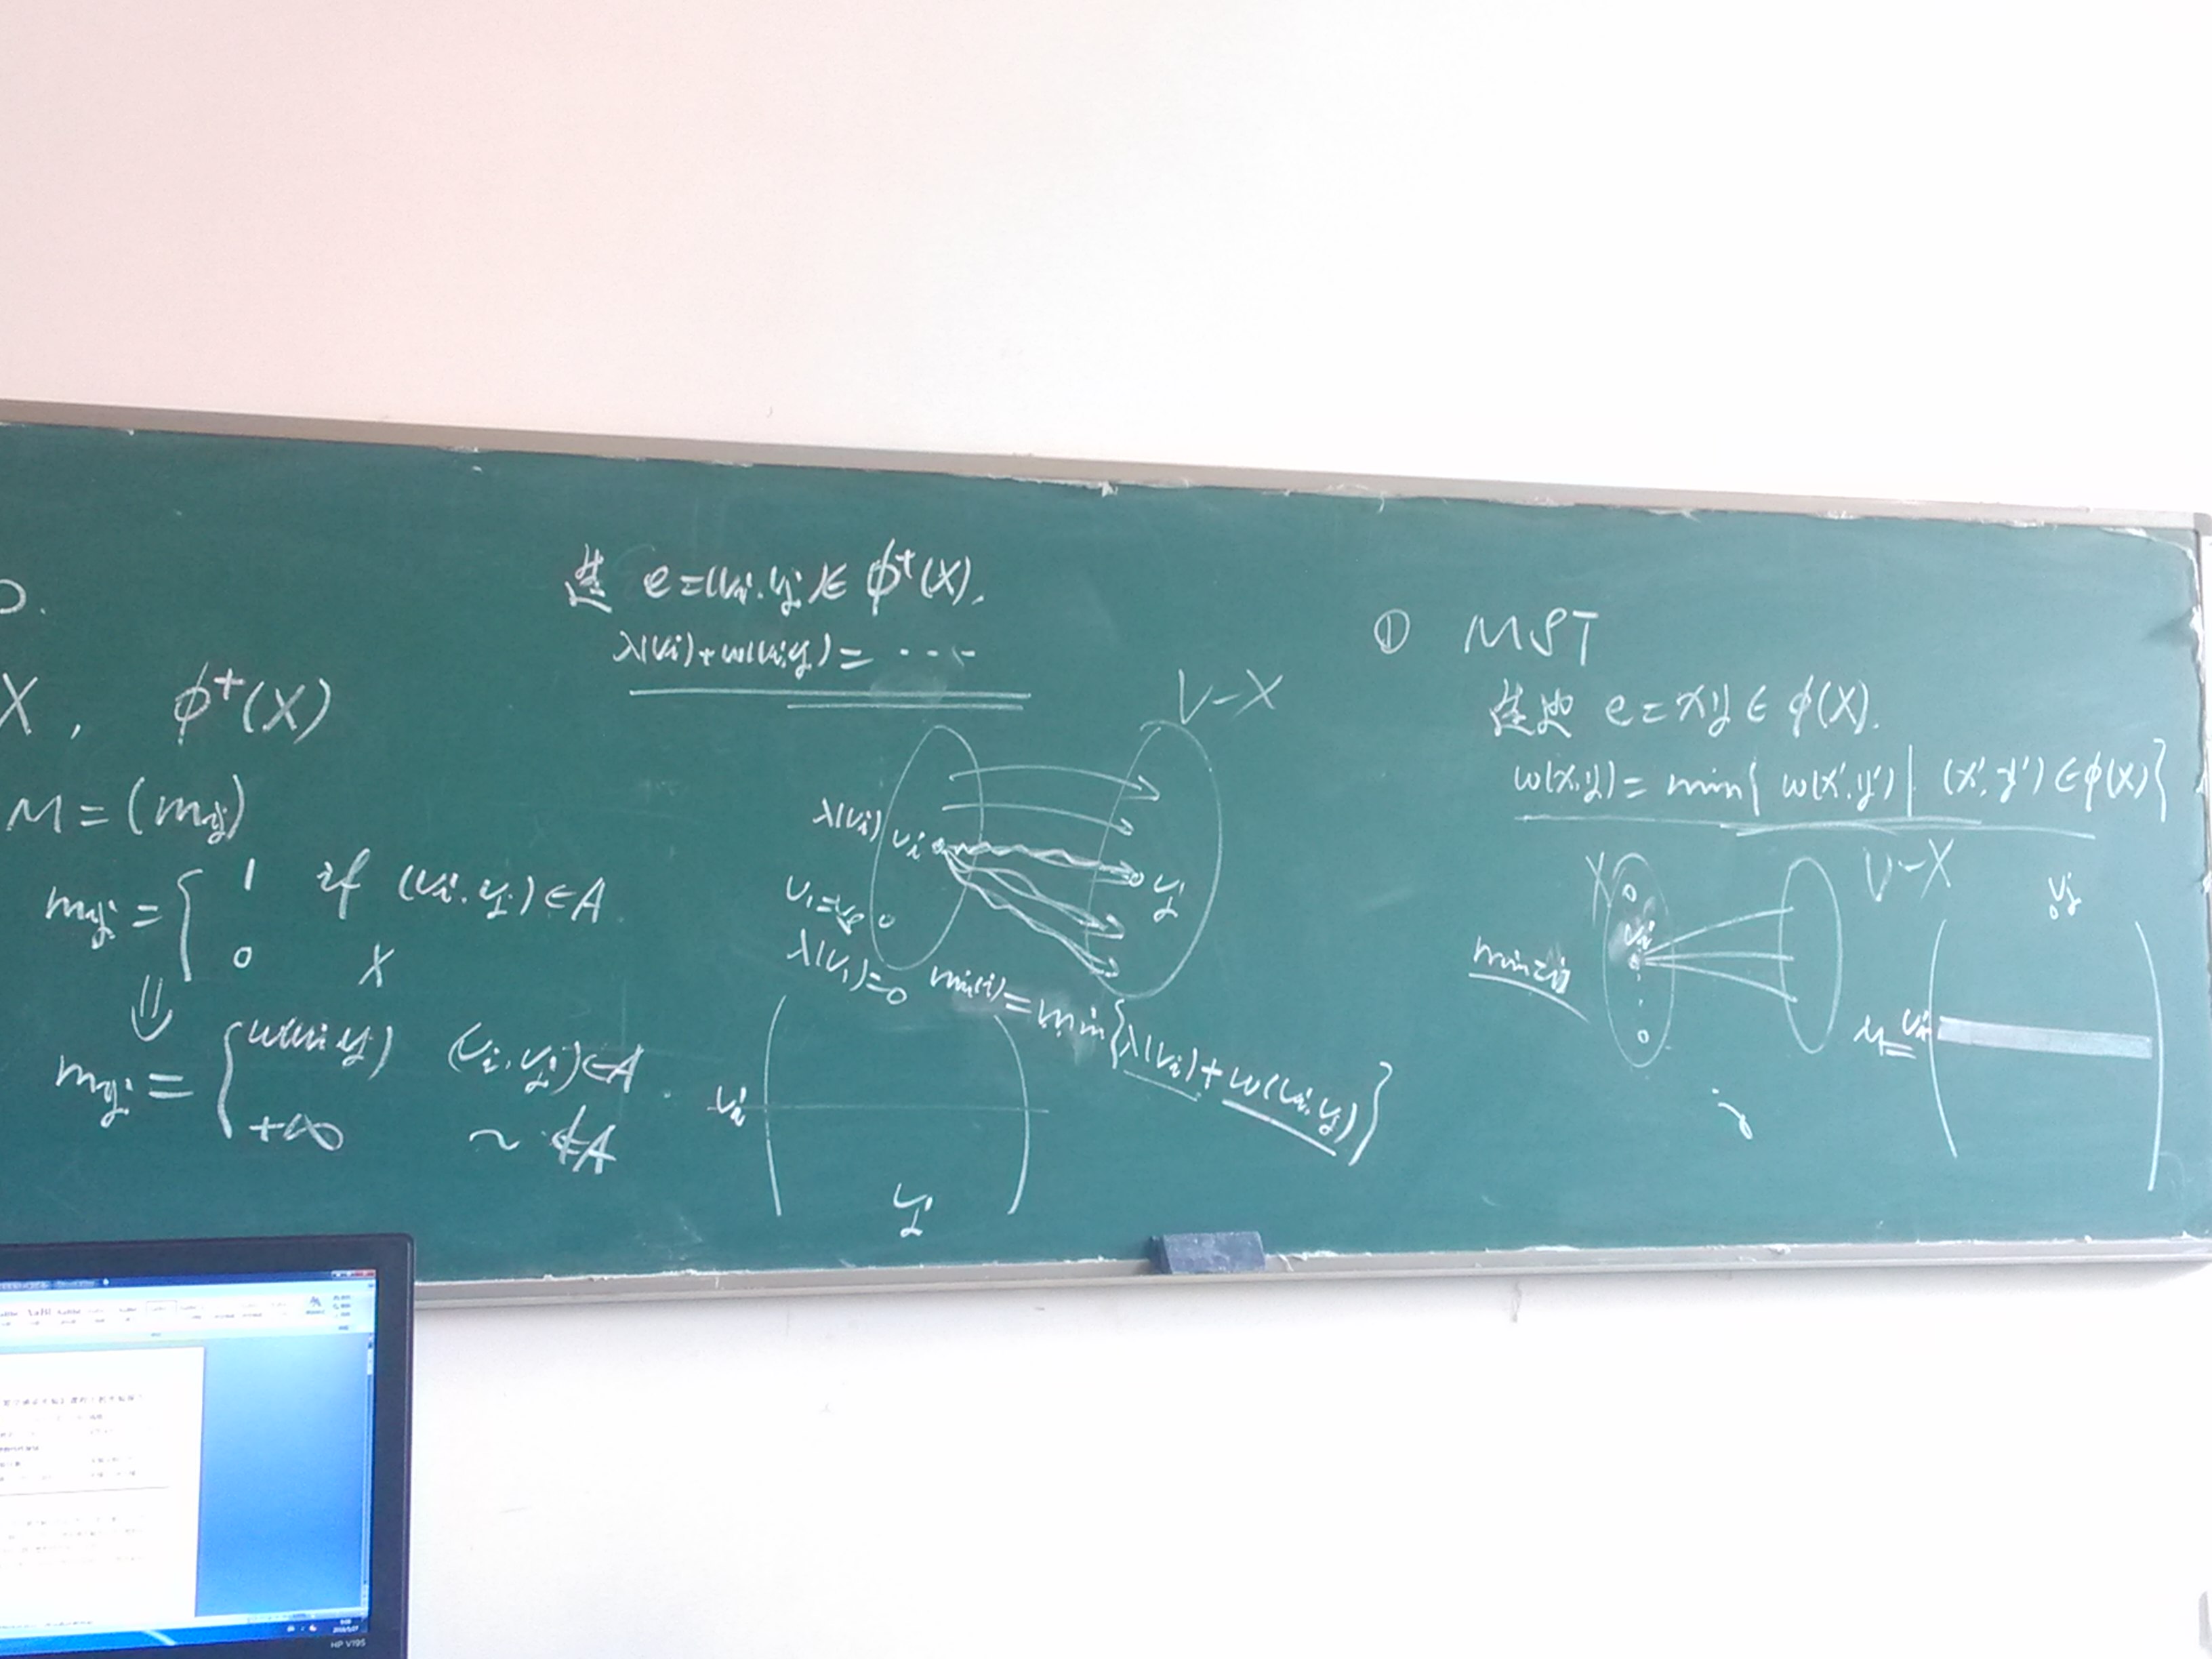 X, ϕ⁺(X)
M = (mij)
mij = { 1 if (vi, vj) ∈ A
0 X
⇓
mij = { w(vi, vj) (vi, vj) ∈ A
+∞ ~ ∉ A
选 e = (vi, vj) ∈ ϕ⁺(X),
λ(vi) + w(vi, vj) = ···
V-X
λ(vi) vi
vj
v1 = v0
λ(v1) = 0
min(i) = min{λ(vi) + w(vi, vj)}
vi
vj
① MST
选边 e = xy ∈ ϕ(X).
w(x, y) = min{ w(x', y') | (x', y') ∈ ϕ(X)}
X V-X
vi
min(i)
vj
M = vi
HP V195